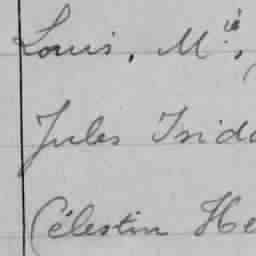 Louis, M.ie,
Jules Isido
Célestin He